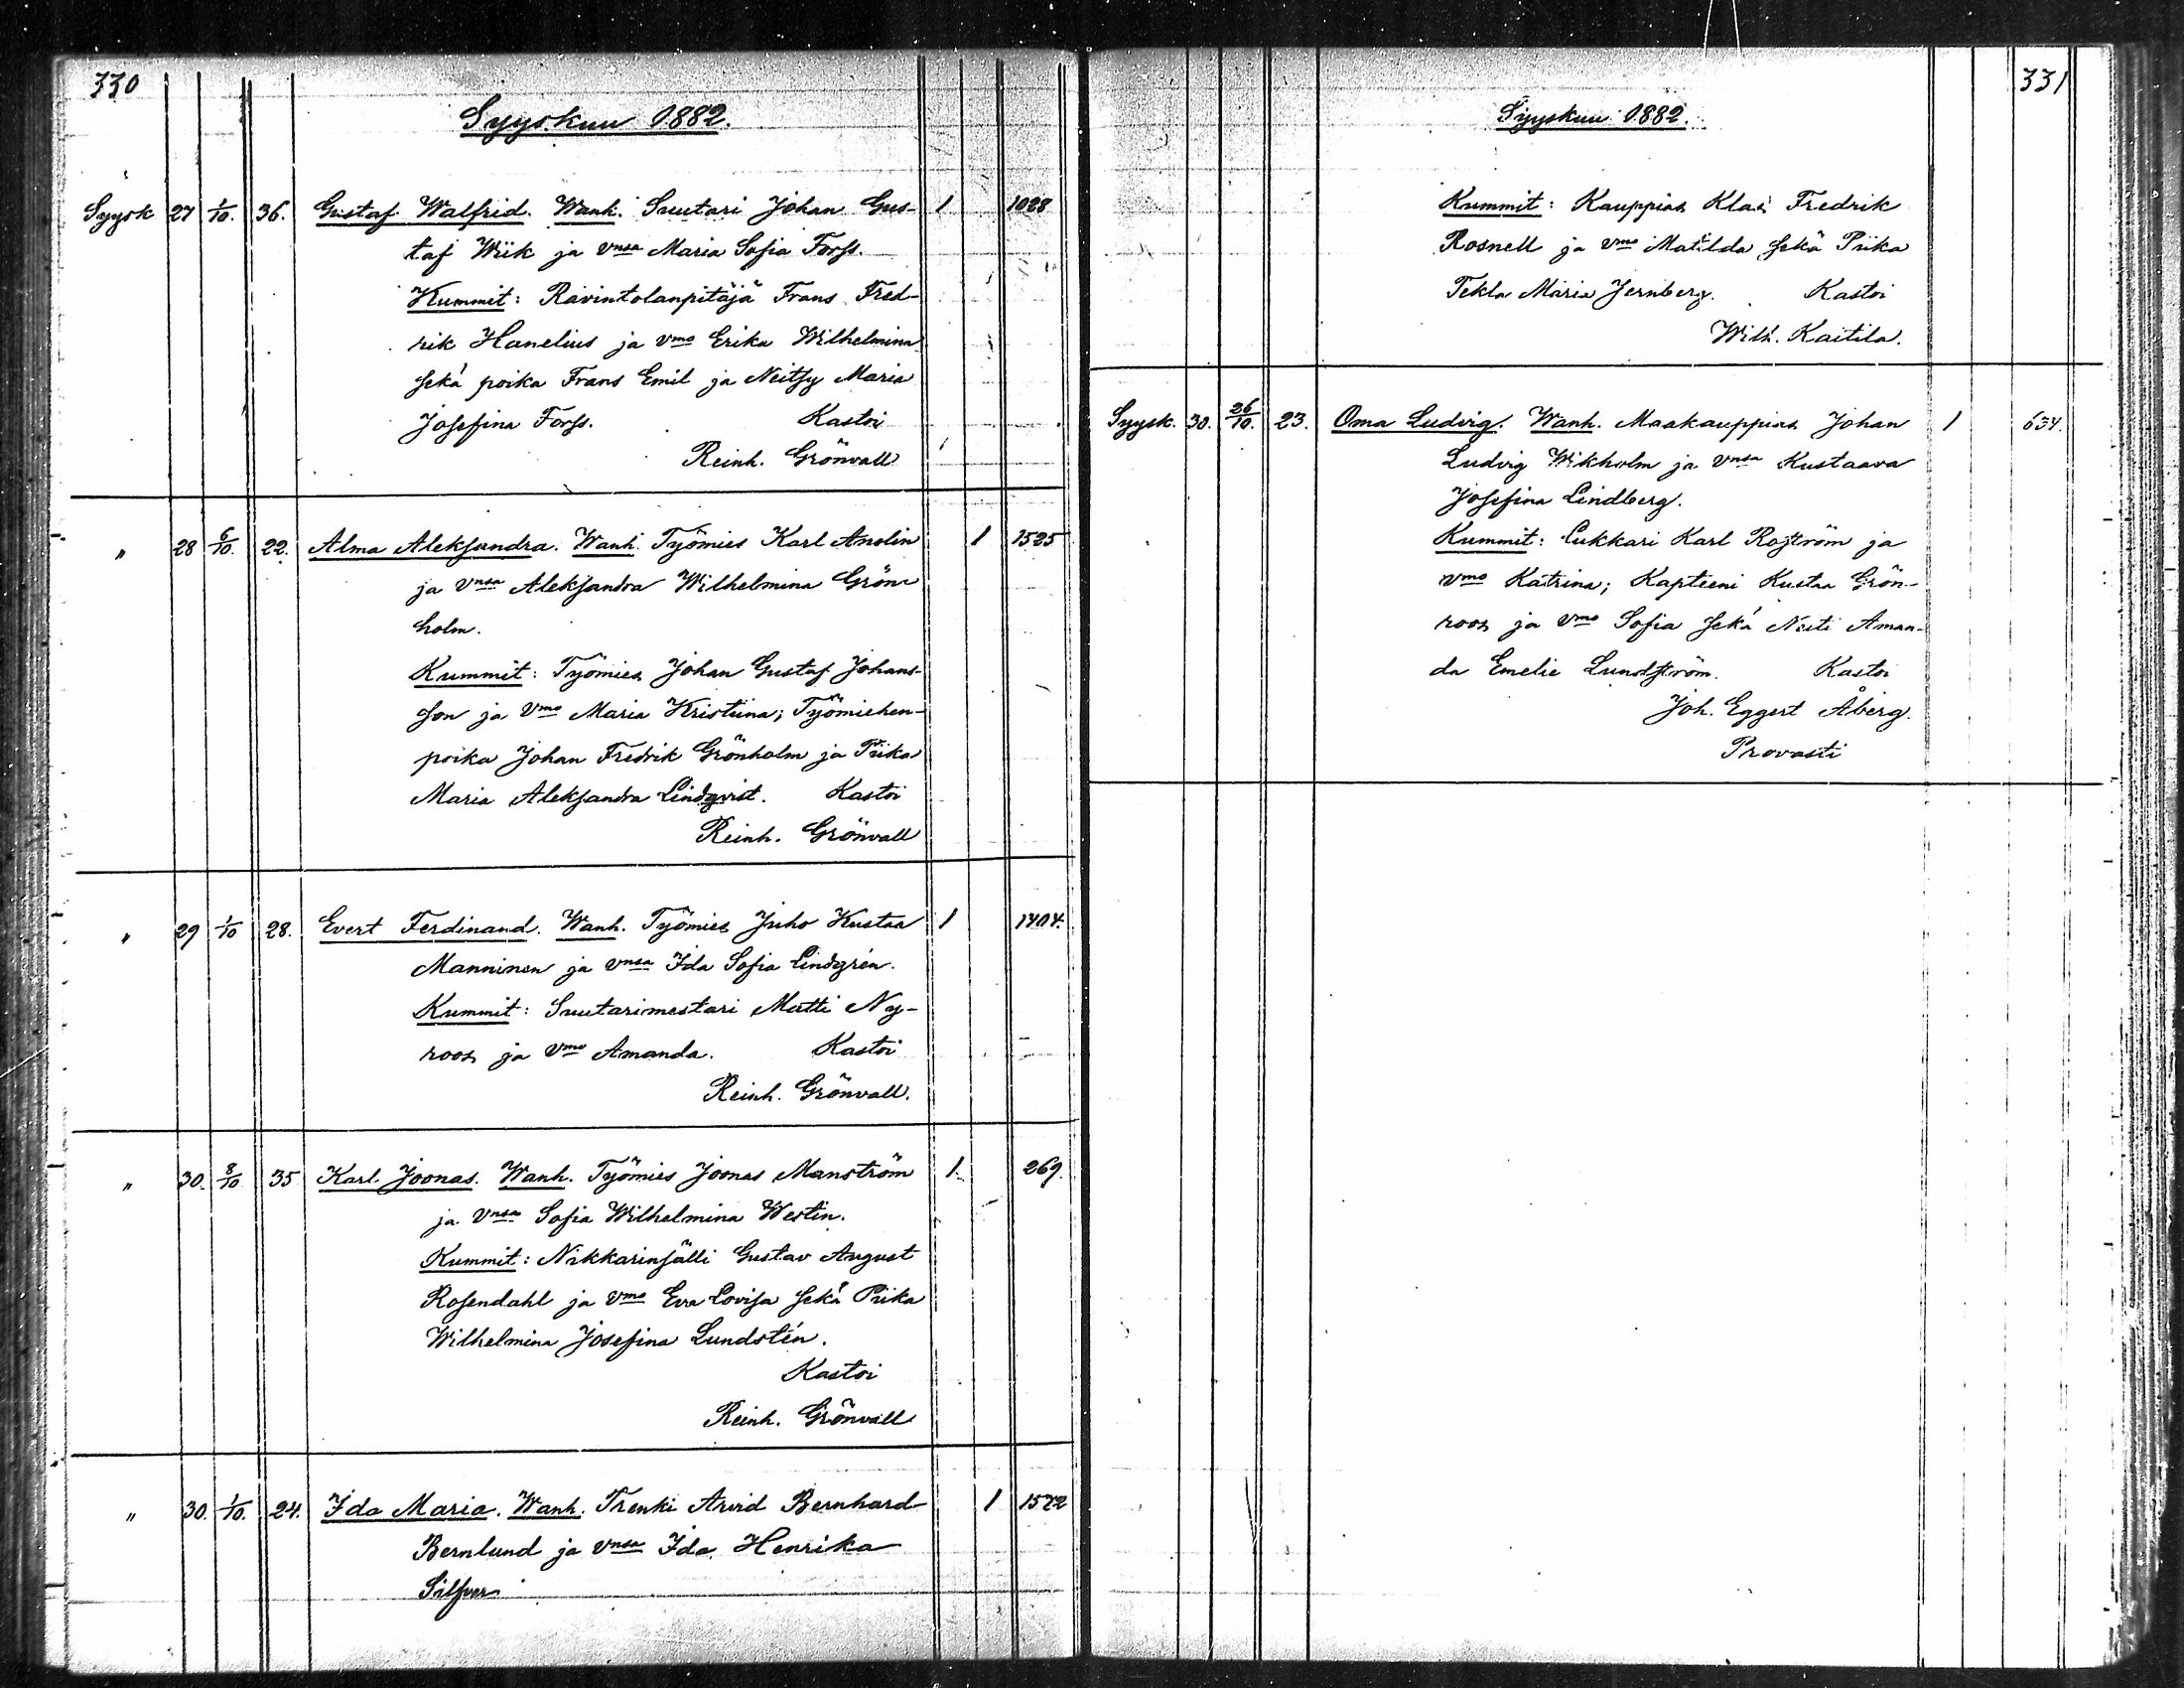 330
Syyskuu 1882.
Syysk 27 1/10. 36. Gustaf Walfrid. Wanh. Suutari Johan Gus- 1 1028
taf Wiik ja vnsa Maria Sofia Forss.
Kummit: Ravintolanpitäjä Frans Fred-
rik Hanelius ja vmo Erika Wilhelmina
sekä poika Frans Emil ja Neitsy Maria
Josefina Forss. Kastoi
Reinh. Grönvall
" 28 6/10. 22. Alma Aleksandra. Wanh. Työmies Karl Anolin 1 1525
ja vnsa Aleksandra Wilhelmina Grön-
holm.
Kummit: Työmies Johan Gustaf Johans-
son ja vmo Maria Kristiina; Työmiehen-
poika Johan Fredrik Grönholm ja Piika
Maria Aleksandra Lindqvist. Kastoi
Reinh. Grönvall
" 29 1/10 28. Evert Ferdinand. Wanh. Työmies Juho Kustaa 1 1404.
Manninen ja vnsa Ida Sofia Lindgrén.
Kummit: Suutarimestari Matti Ny-
roos ja vmo Amanda. Kastoi
Reinh. Grönvall.
" 30. 8/10 35 Karl Joonas. Wanh. Työmies Joonas Manström 1. 269.
ja vnsa Sofia Wilhelmina Westin.
Kummit: Nikkarinsälli Gustav August
Rosendahl ja vmo Eva Lovisa sekä Piika
Wilhelmina Josefina Lundstén.
Kastoi
Reinh. Grönvall
" 30. 1/10. 24. Ida Maria. Wanh. Trenki Arvid Bernhard 1 1572
Bernlund ja vnsa Ida Henrika
Silfver
331
Syyskuu 1882.
Kummit: Kauppias Klas Fredrik
Rosnell ja vmo Matilda sekä Piika
Tekla Maria Jernberg. Kastoi
Wilh. Kaitila.
Syysk. 30. 26/10. 23. Oma Ludvig. Wanh. Maakauppias Johan 1 634.
Ludvig Wikholm ja vnsa Kustaava
Josefina Lindberg.
Kummit: Lukkari Karl Roström ja
vmo Katrina; Kapteeni Kustaa Grön-
roos ja vmo Sofia sekä Neiti Aman-
da Emelie Lundström. Kastoi
Joh. Eggert Åberg.
Provasti